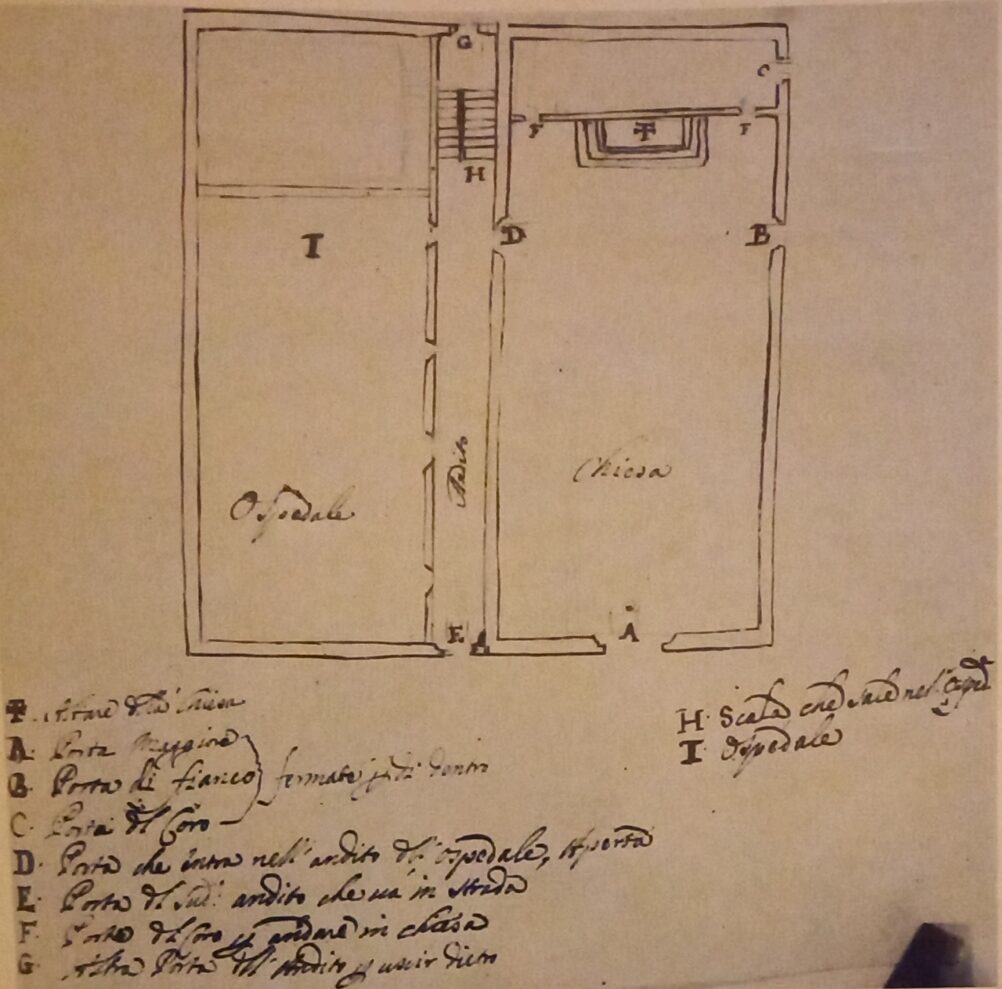 G
C
F ✝ F
H
I D B
Andito
Chiesa
Ospedale
E A
✝. Altare dla Chiesa
A. Porta Maggiore
B. Porta di fianco
C. Porta del Coro
fermate di dentro
D. Porta che entra nell'andito dl' Ospedale, Aperta
E. Porta dl Sud: andito che va in strada
F. Porte dl Coro andare in chiesa
G. Altra Porta dll' Andito uscir dietro
H. Scala che sale nell'
I. Ospedale